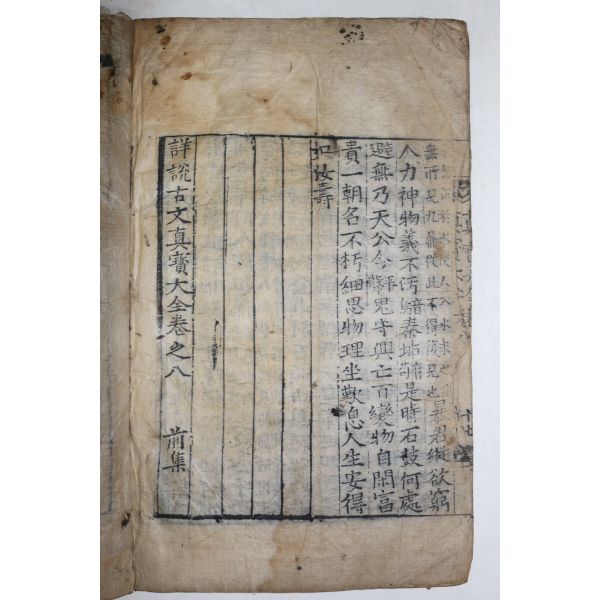 人入水求之
無所見九鼎從此不得復見也 暴君縱欲窮
人力神物義不汚秦垢是時石鼓何處
避無乃天公令鬼守興亡百變物自閑富
貴一朝名不朽細思物理坐歎息人生安得
如汝壽
詳說古文真寶大全卷之八 前集